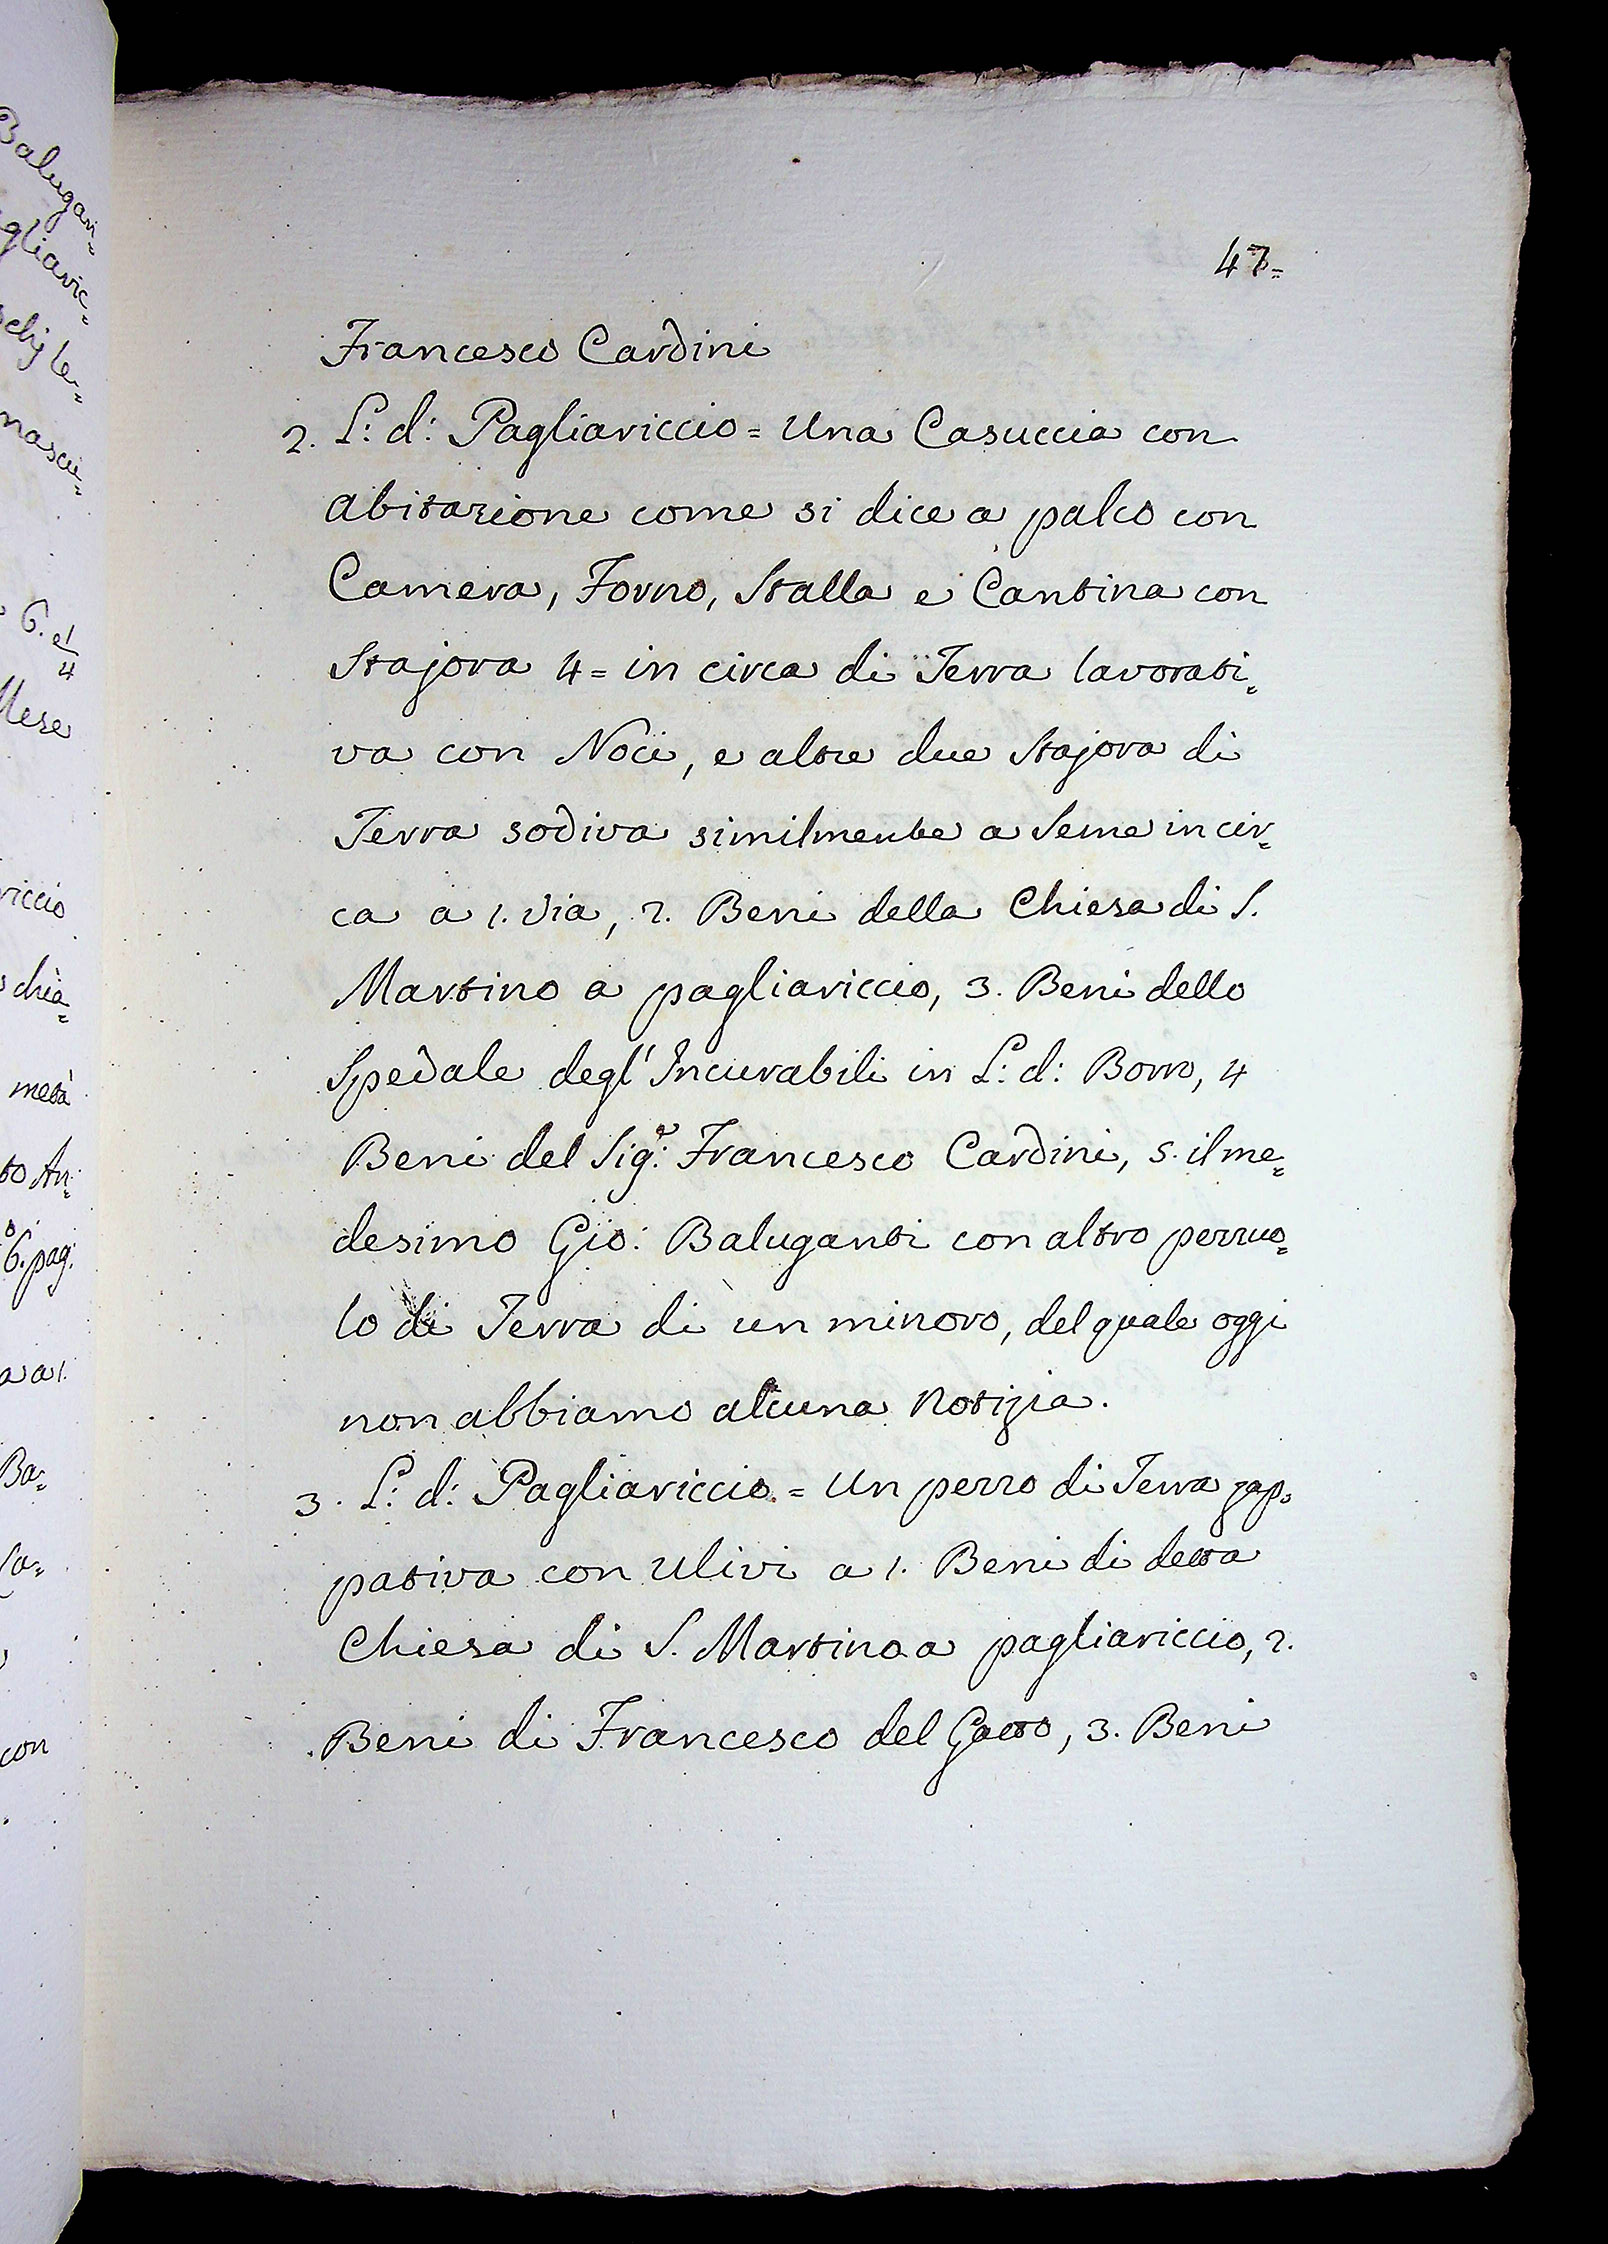 Balugan=
gliaric=
schj le=
nascu=
6. e 1/4
Mese
riccio
chia=
metà
to An=
6. pag:
a a 1.
Ba=
Ca=
con
47=
Francesco Cardini
2. L: d: Pagliariccio = Una Casuccia con
abitazione come si dice a palco con
Camera, Forno, Stalla e Cantina con
Stajora 4 = in circa di Terra lavorati=
va con Noci, e altre due Stajora di
Terra sodiva similmente a Seme in cir=
ca a 1. Via, 2. Beni della Chiesa di S.
Martino a pagliariccio, 3. Beni dello
Spedale degl' Incurabili in L: d: Borro, 4
Beni del Sig.r: Francesco Cardini, 5. il me=
desimo Gio: Baluganti con altro pezzuo=
lo di Terra di un minoro, del quale oggi
non abbiamo alcuna Notizia.
3. L: d: Pagliariccio = Un pezzo di Terra zap=
pativa con Ulivi a 1. Beni di detta
Chiesa di S. Martino a pagliariccio, 2.
Beni di Francesco del Gatto, 3. Beni